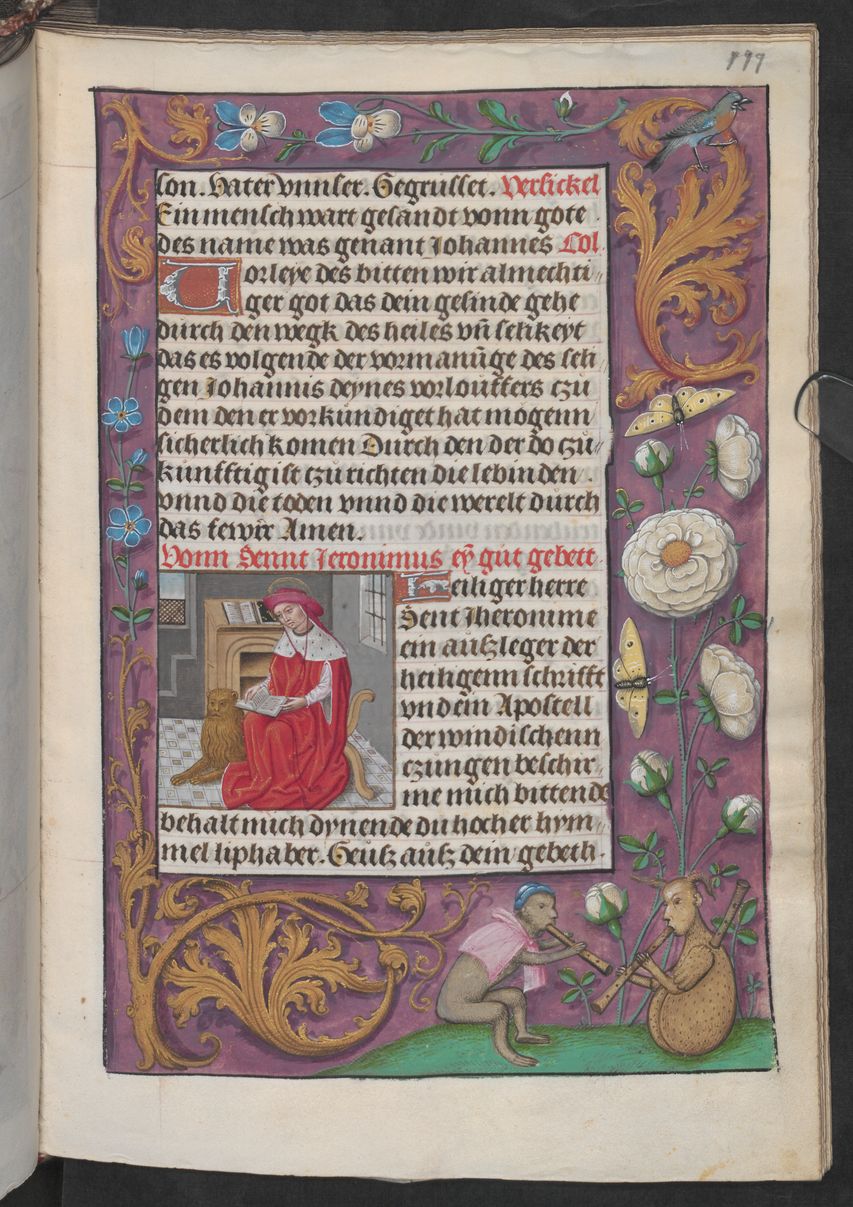 199
son. Vater vnnser. Gegrusset. Versickel
Ein mensch wart gesandt vonn gote
des name was genant Johannes Col
orleye des bitten wir almechti/
ger got das dein gesinde gehe
durch den wegk des heiles vn̄ selikeyt
das es volgende der vormanūge des seli
gen Johannis deynes vorlouffers czu
dem den er vorkundiget hat mogenn
sicherlich komen Durch den der do czu/
kunfftig ist czu richten die lebinden
vnnd die toden vnnd die werelt durch
das fewir Amen.
Vonn Sennt Jeronimus eȳ gut gebett
Heiliger herre
Sent Jheronime
ein auszleger der
heiligenn schrifft
vnd ein Apostell
der windischenn
czungen beschir/
me mich bittende
behalt mich dynende du hocher hym/
mel liphaber. Geusz ausz dein gebeth